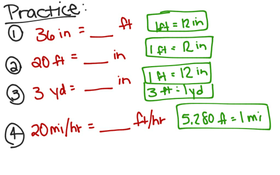 Practice:
① 36 in = ___ ft 1ft = 12 in
② 20 ft = ___ in 1 ft = 12 in
③ 3 yd = ___ in 1 ft = 12 in
3 ft = 1yd
④ 20 mi/hr = ___ ft/hr 5,280 ft = 1 mi